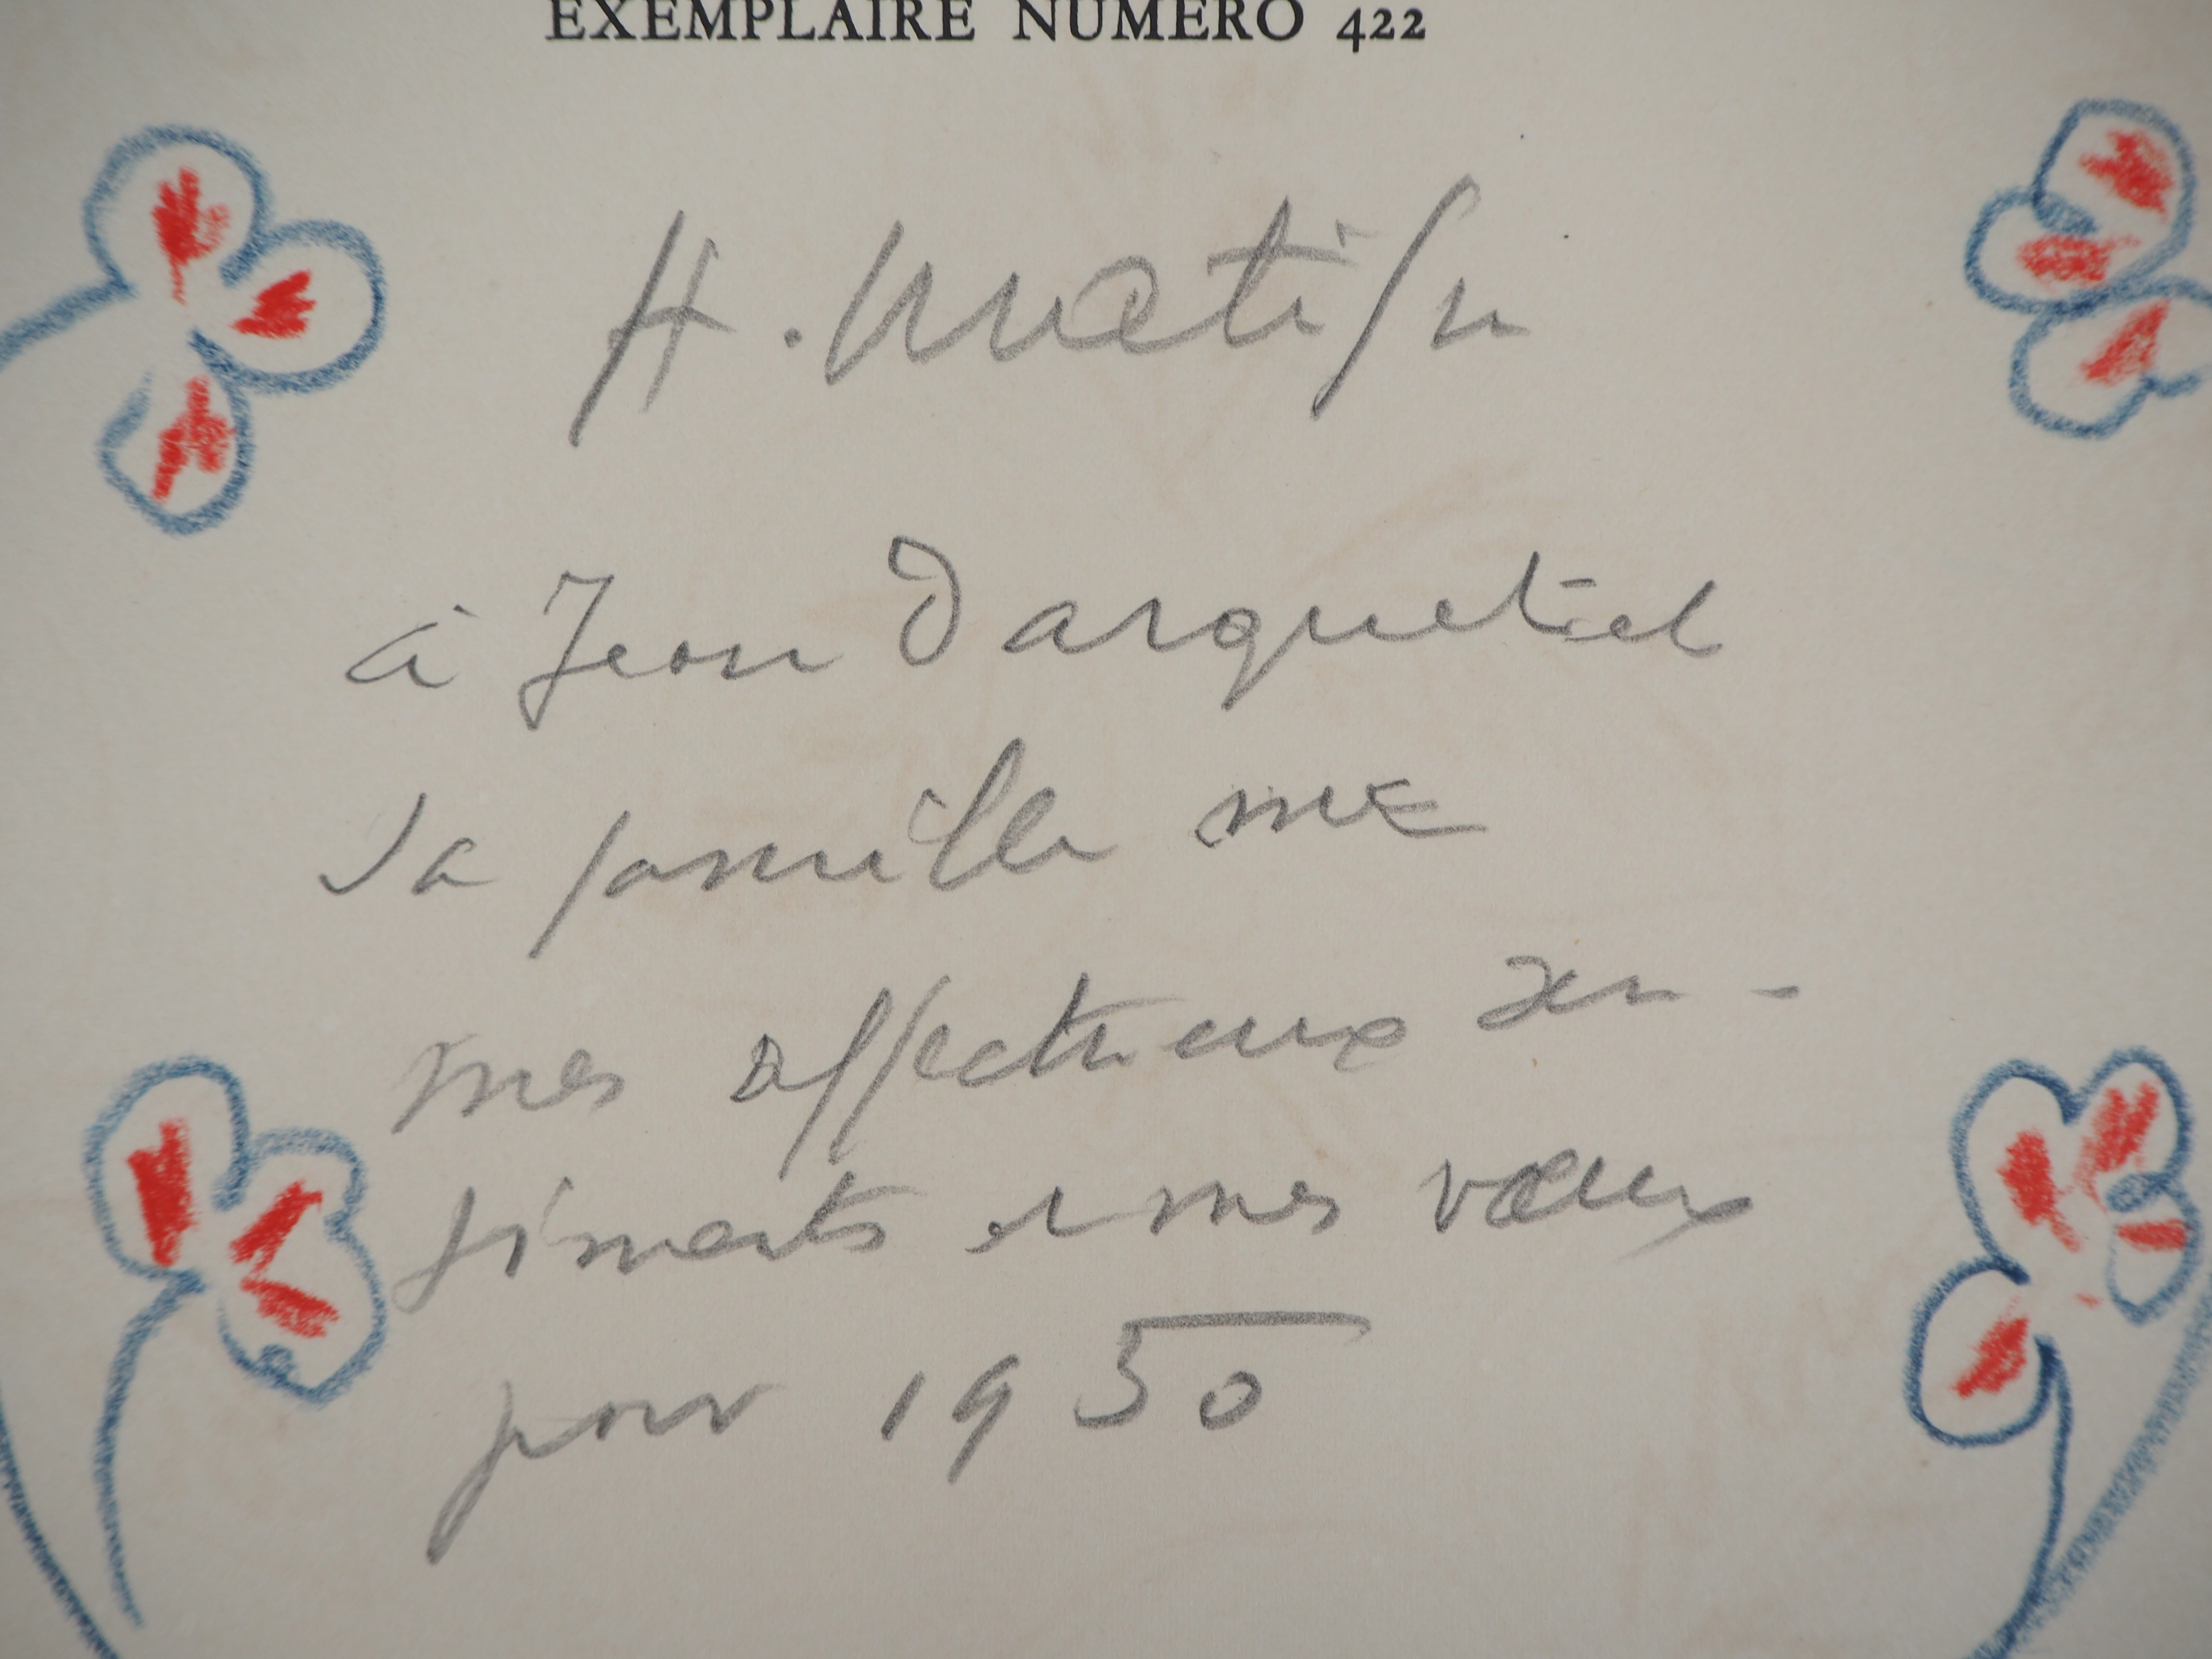 EXEMPLAIRE NUMÉRO 422
H. Matisse
à Jean Darquetiel
sa famille
mes affectueux sen-
timents et mes vœux
pour 1950